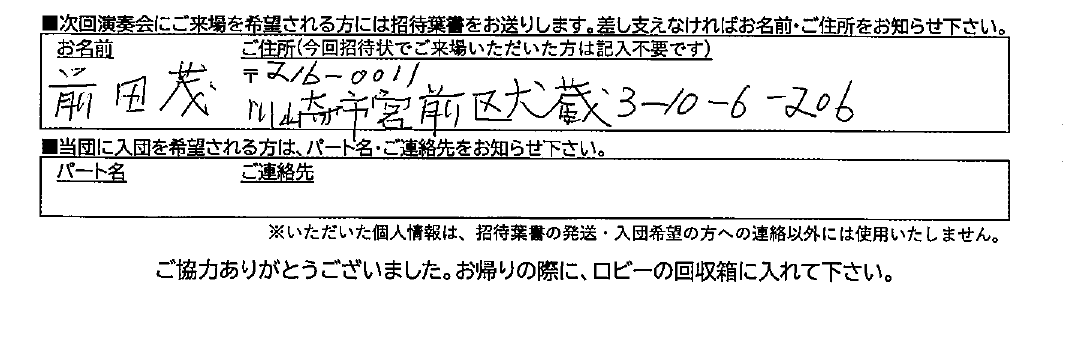 ■次回演奏会にご来場を希望される方には招待葉書をお送りします。差し支えなければお名前・ご住所をお知らせ下さい。
お名前 ご住所(今回招待状でご来場いただいた方は記入不要です)
〒216-0011
前田茂 川崎市宮前区犬蔵3-10-6-206
■当団に入団を希望される方は、パート名・ご連絡先をお知らせ下さい。
パート名 ご連絡先
※いただいた個人情報は、招待葉書の発送・入団希望の方への連絡以外には使用いたしません。
ご協力ありがとうございました。お帰りの際に、ロビーの回収箱に入れて下さい。